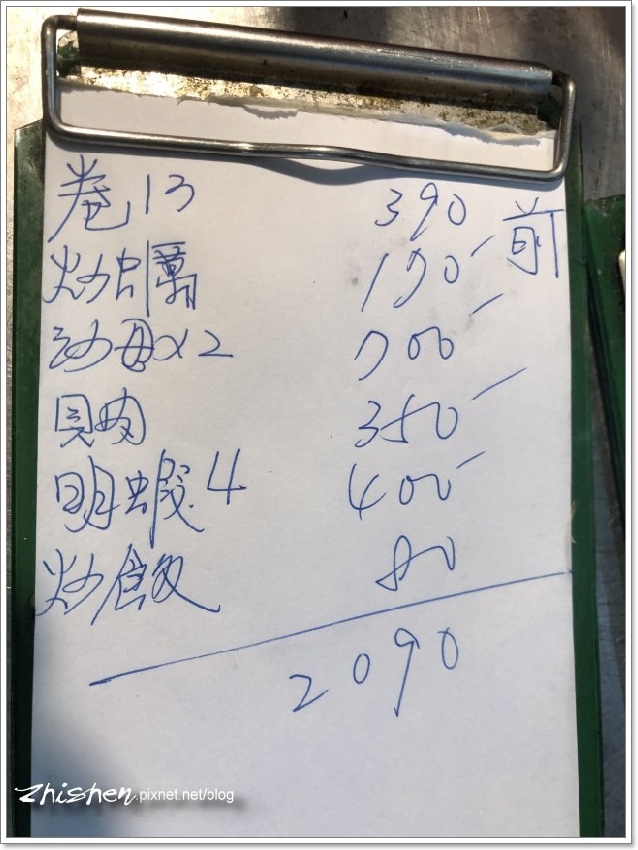 卷13 390 前
炒蠣 170
沙母x2 700
貝肉 350
明蝦4 400
炒飯 80
2090
zhishen.pixnet.net/blog